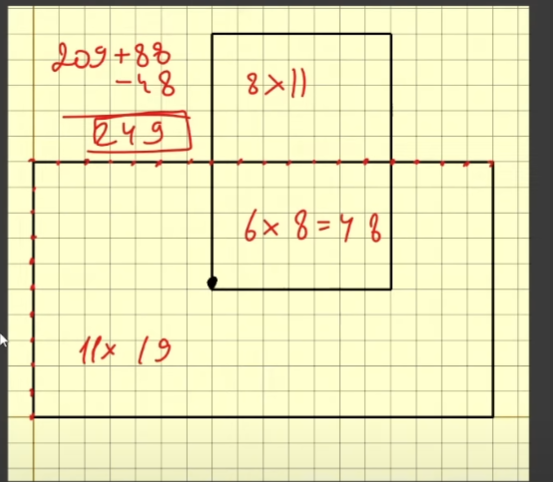 209+88
-48
249
8×11
6×8=48
11×19